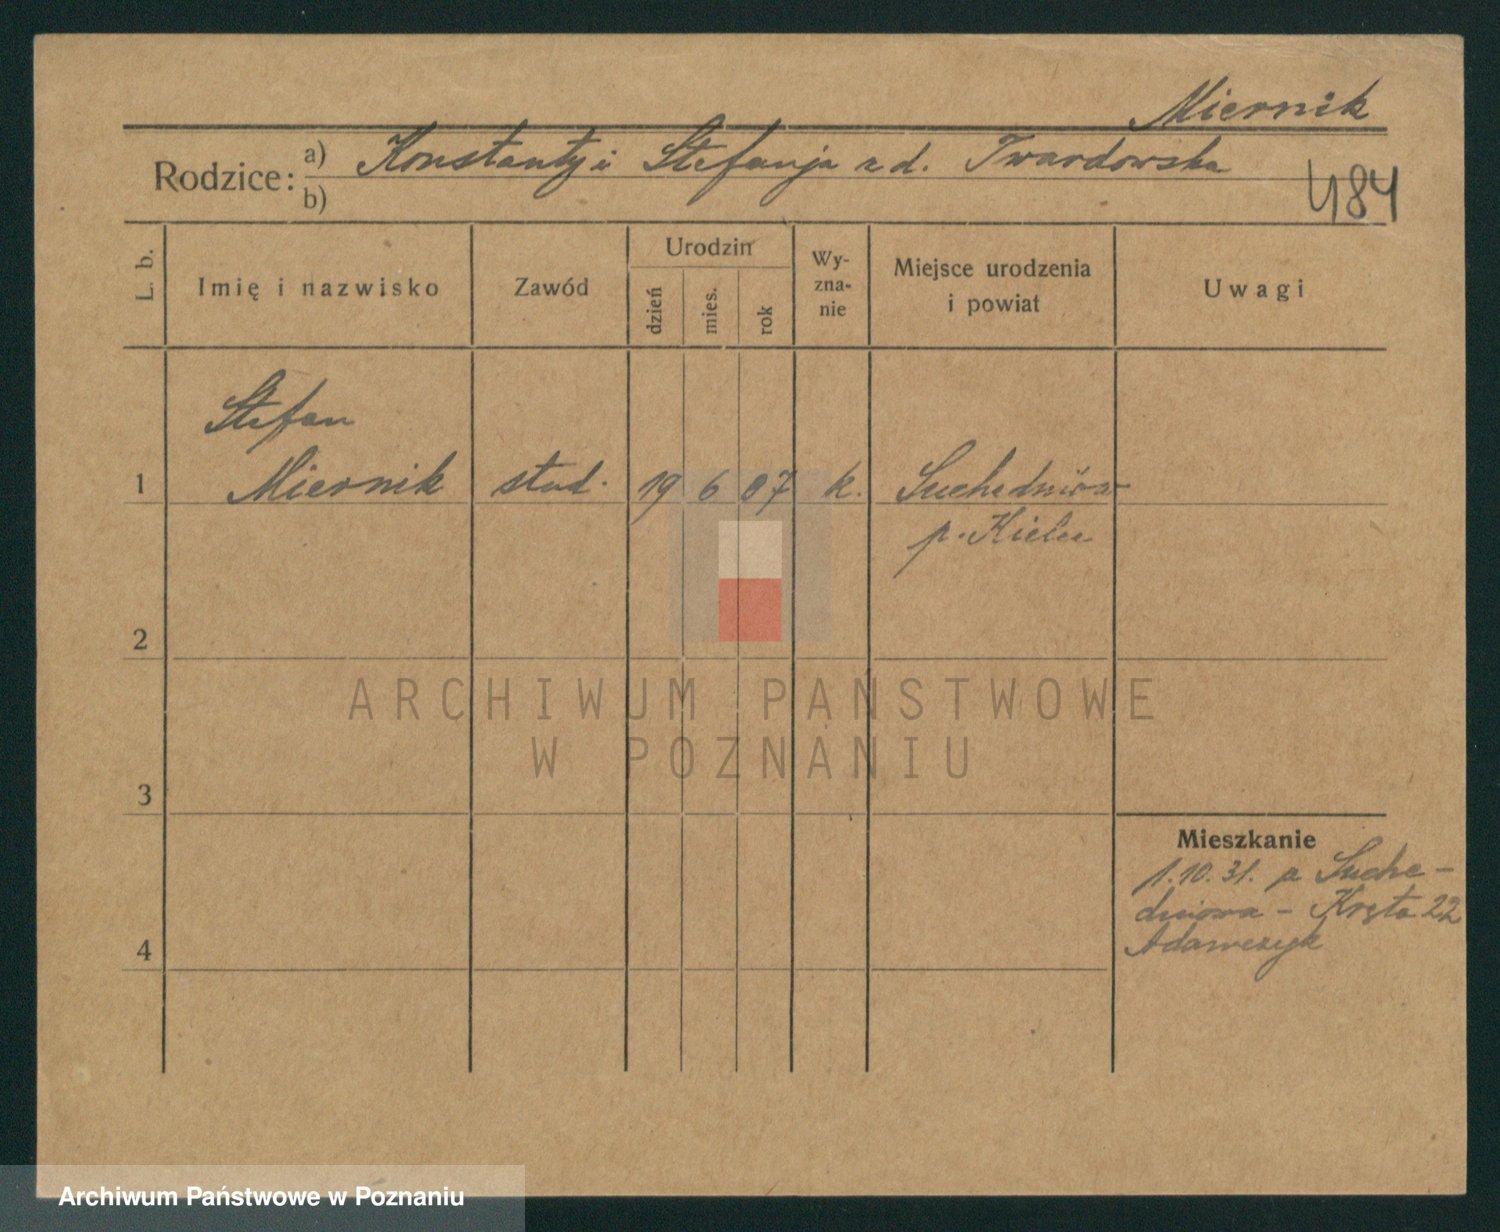 Miernik
Rodzice: a) Konstanty i Stefanja z d. Twardowska
b)
484
L. b.
Imię i nazwisko
Zawód
Urodzin
dzień
mies.
rok
Wy-
zna-
nie
Miejsce urodzenia
i powiat
Uwagi
Stefan
1 Miernik stud. 19 6 07 k. Suchedniów
p. Kielce
2
ARCHIWUM PAŃSTWOWE
W POZNANIU
3
Mieszkanie
1.10.31. z Suche-
dniowa - Kręta 22
4 Adamczyk
Archiwum Państwowe w Poznaniu